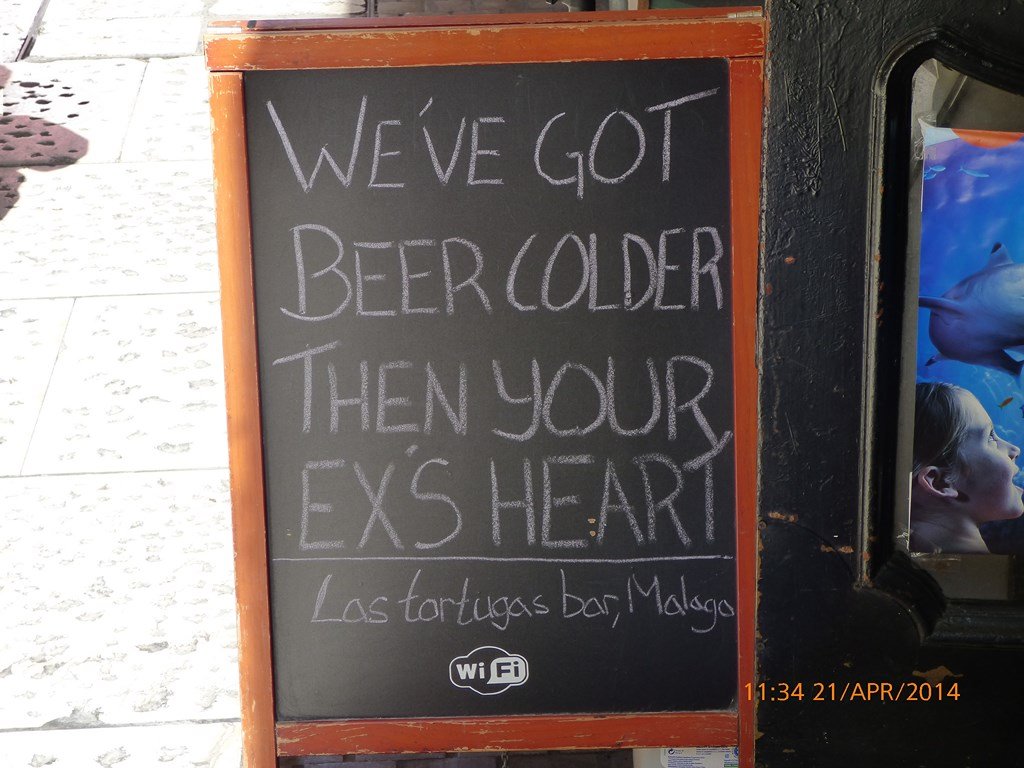 WE'VE GOT
BEER COLDER
THEN YOUR
EX'S HEART
Las tortugas bar, Malaga
Wi Fi
11:34 21/APR/2014